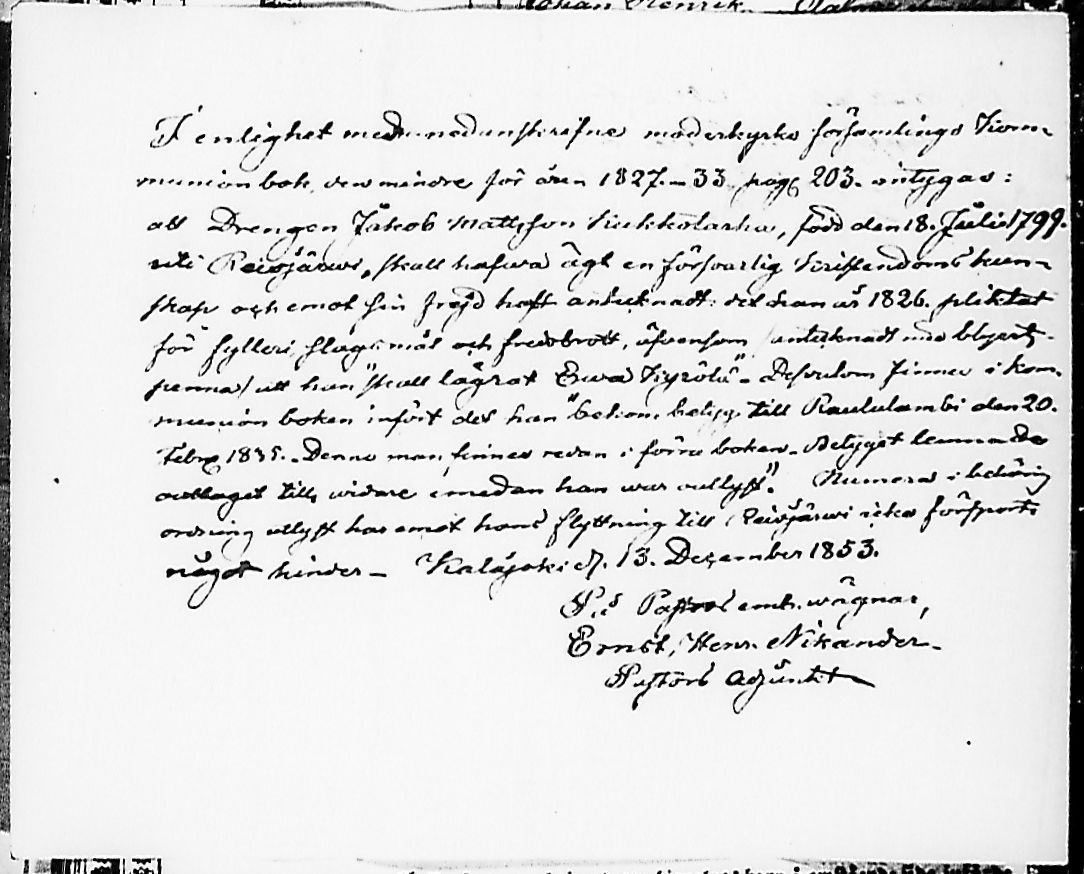 Johan Henrik
I enlighet med nedanskrifne moderkyrko församlings Kom-
munion bok, den mindre för åren 1827.–33 pag 203. intygas:
att Drengen Jakob Mattsson Kukkolarha, född den 18. Julii 1799.
uti Reisjärwi, skall hafwa ägt en försvarlig Kristendoms kun-
skap och emot sin frejd haft antecknadt: det han år 1826. pliktat
för fylleri, slagsmål och fredsbrott, äfvensom /antecknadt med blyerts-
penna/ att han "skall lägrat Ewa Kyrölä" – Dessutom finnes i kom-
munion boken infört det han "bekom. betyg. till Raululambi den 20.
Febr 1835. – Denne man finnes redan i förra boken. – Betyget lemnades
outtaget tills widare emedan han war outlyst". Numera i behörig
ordning utlyst har emot hans flyttning till Reisjärwi icke försports
något hinder – Kalajoki d. 13. December 1853.
P.s Pastors emb. wägnar,
Ernst, Henr. Nikander –
Pastors Adjunkt